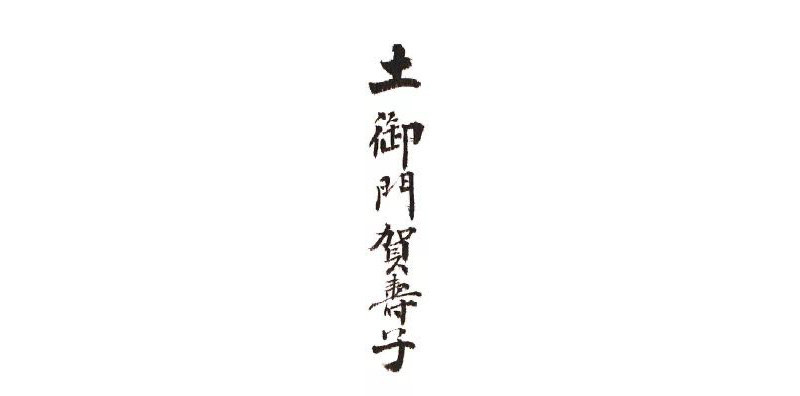 土御門賀壽子